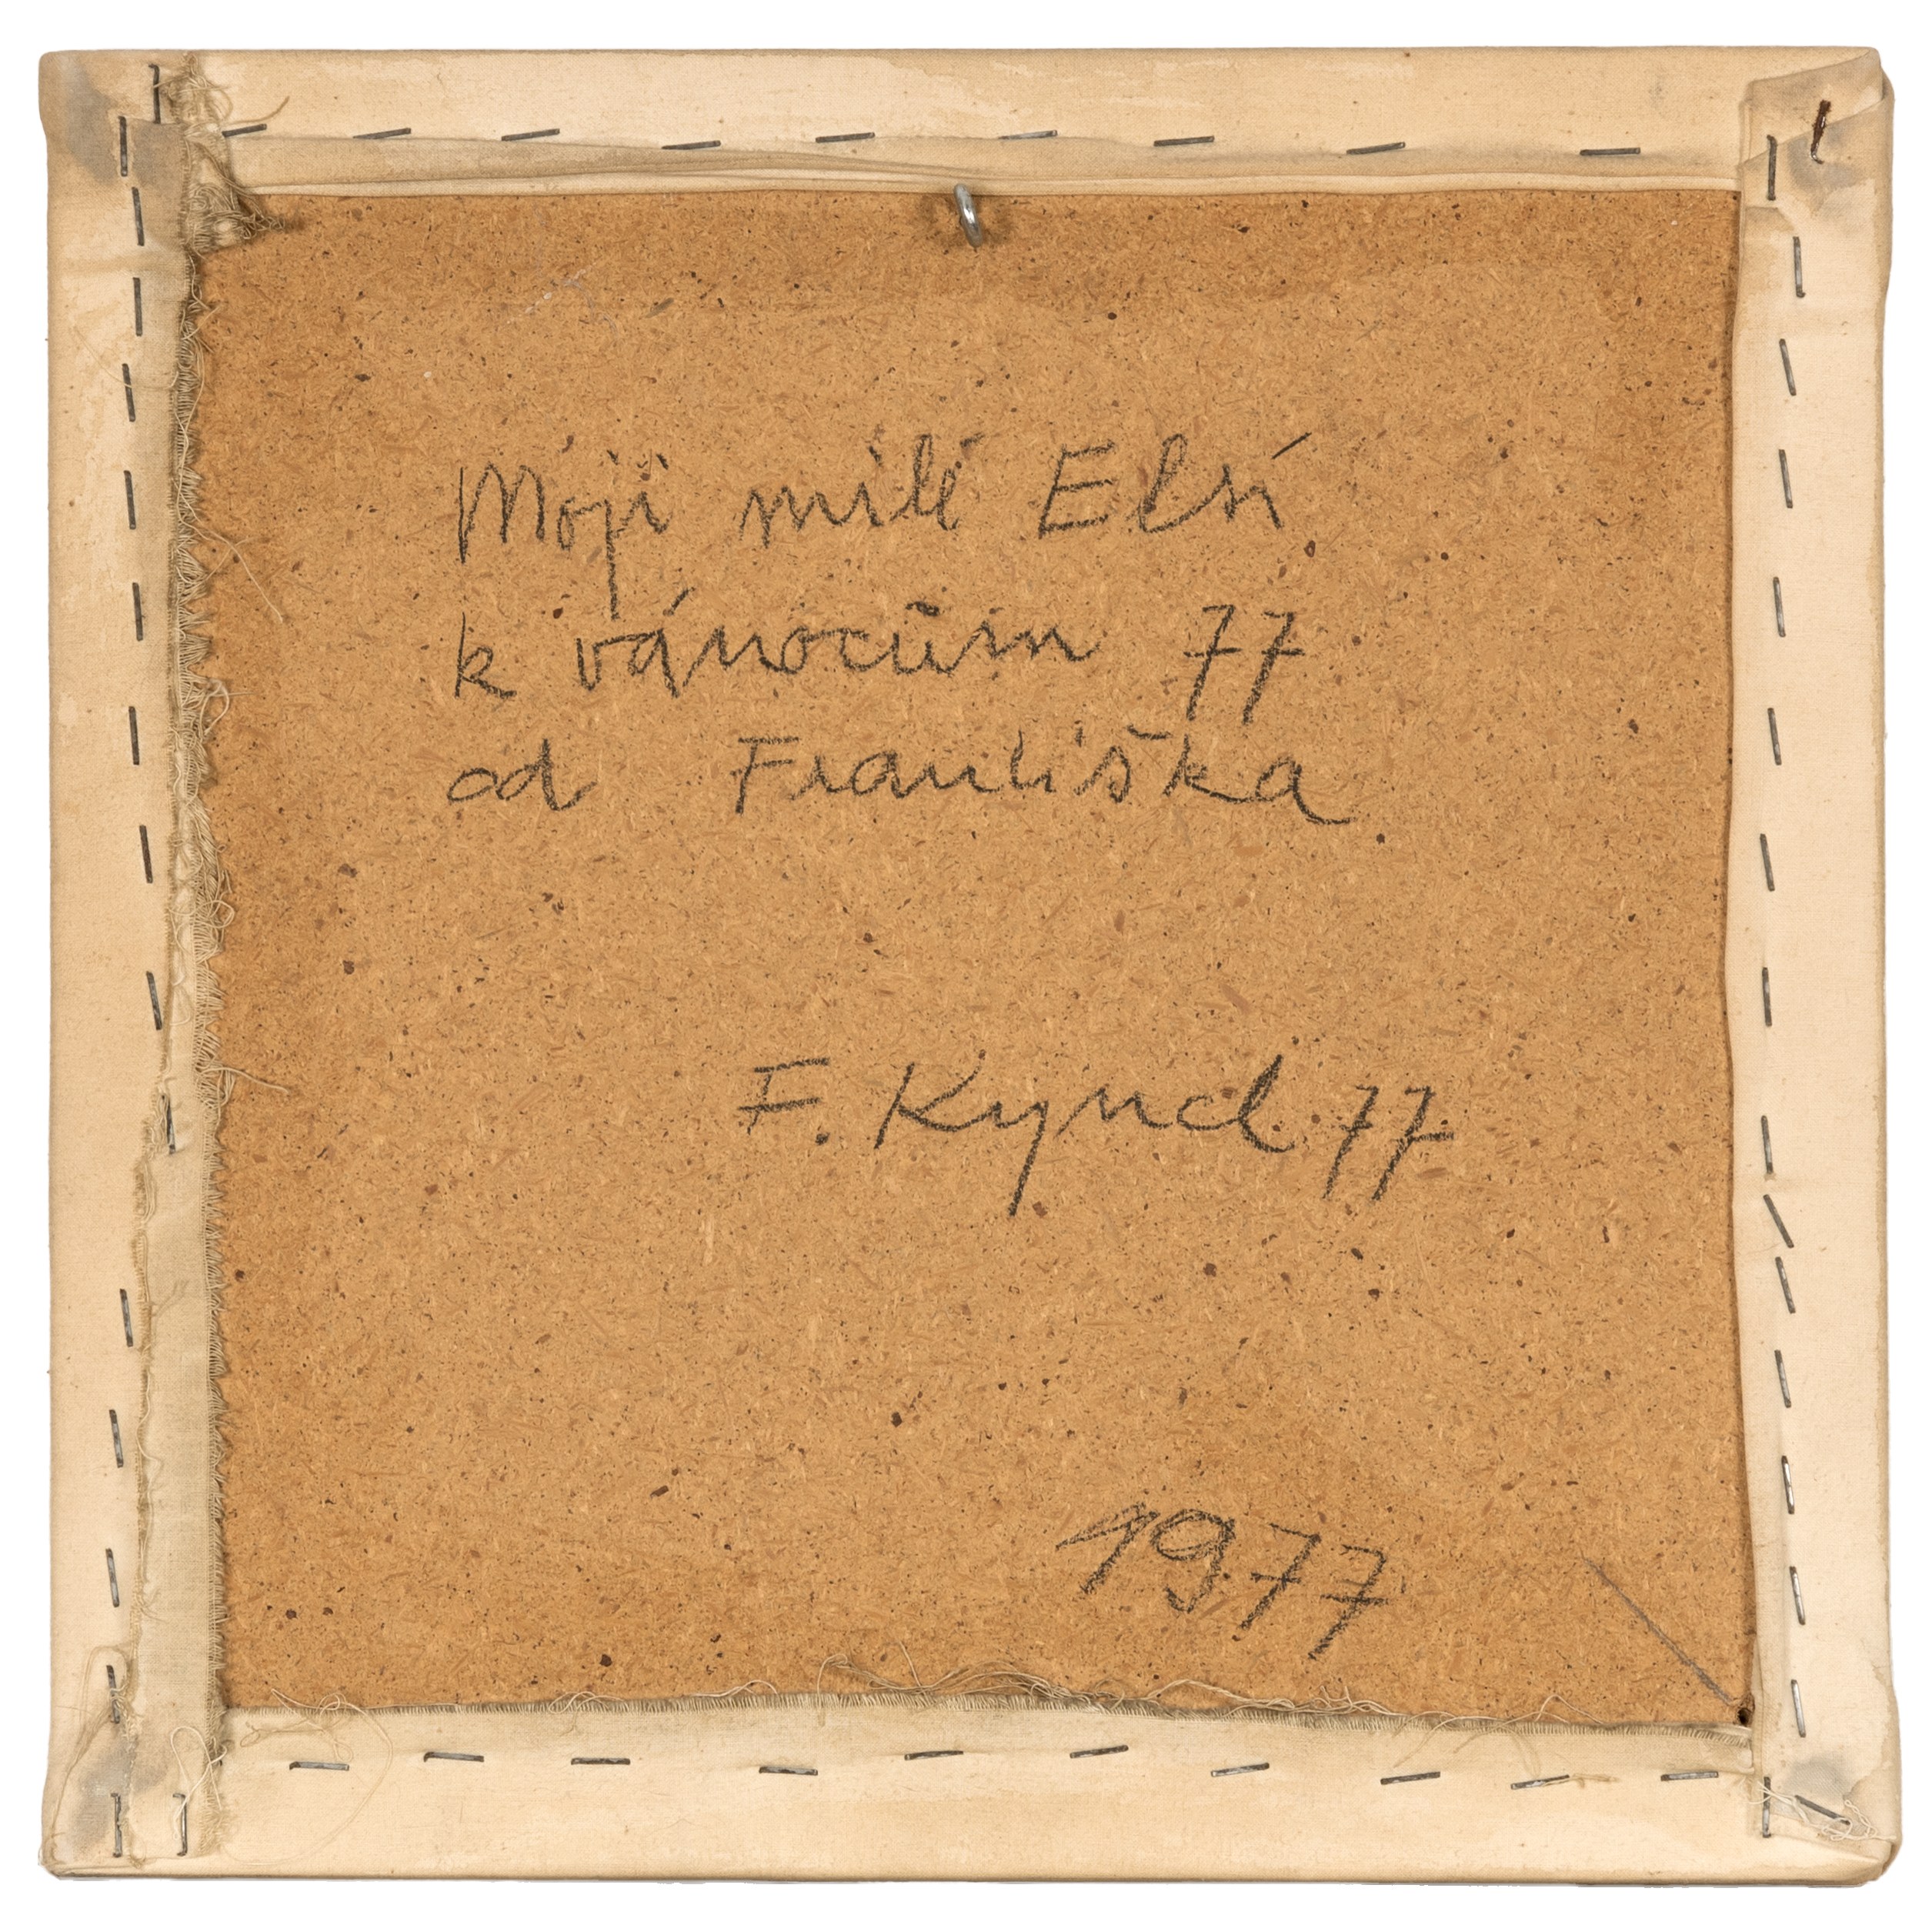 Moji milé Elsí
k vánocům 77
od Františka
F. Kyncl 77
1977